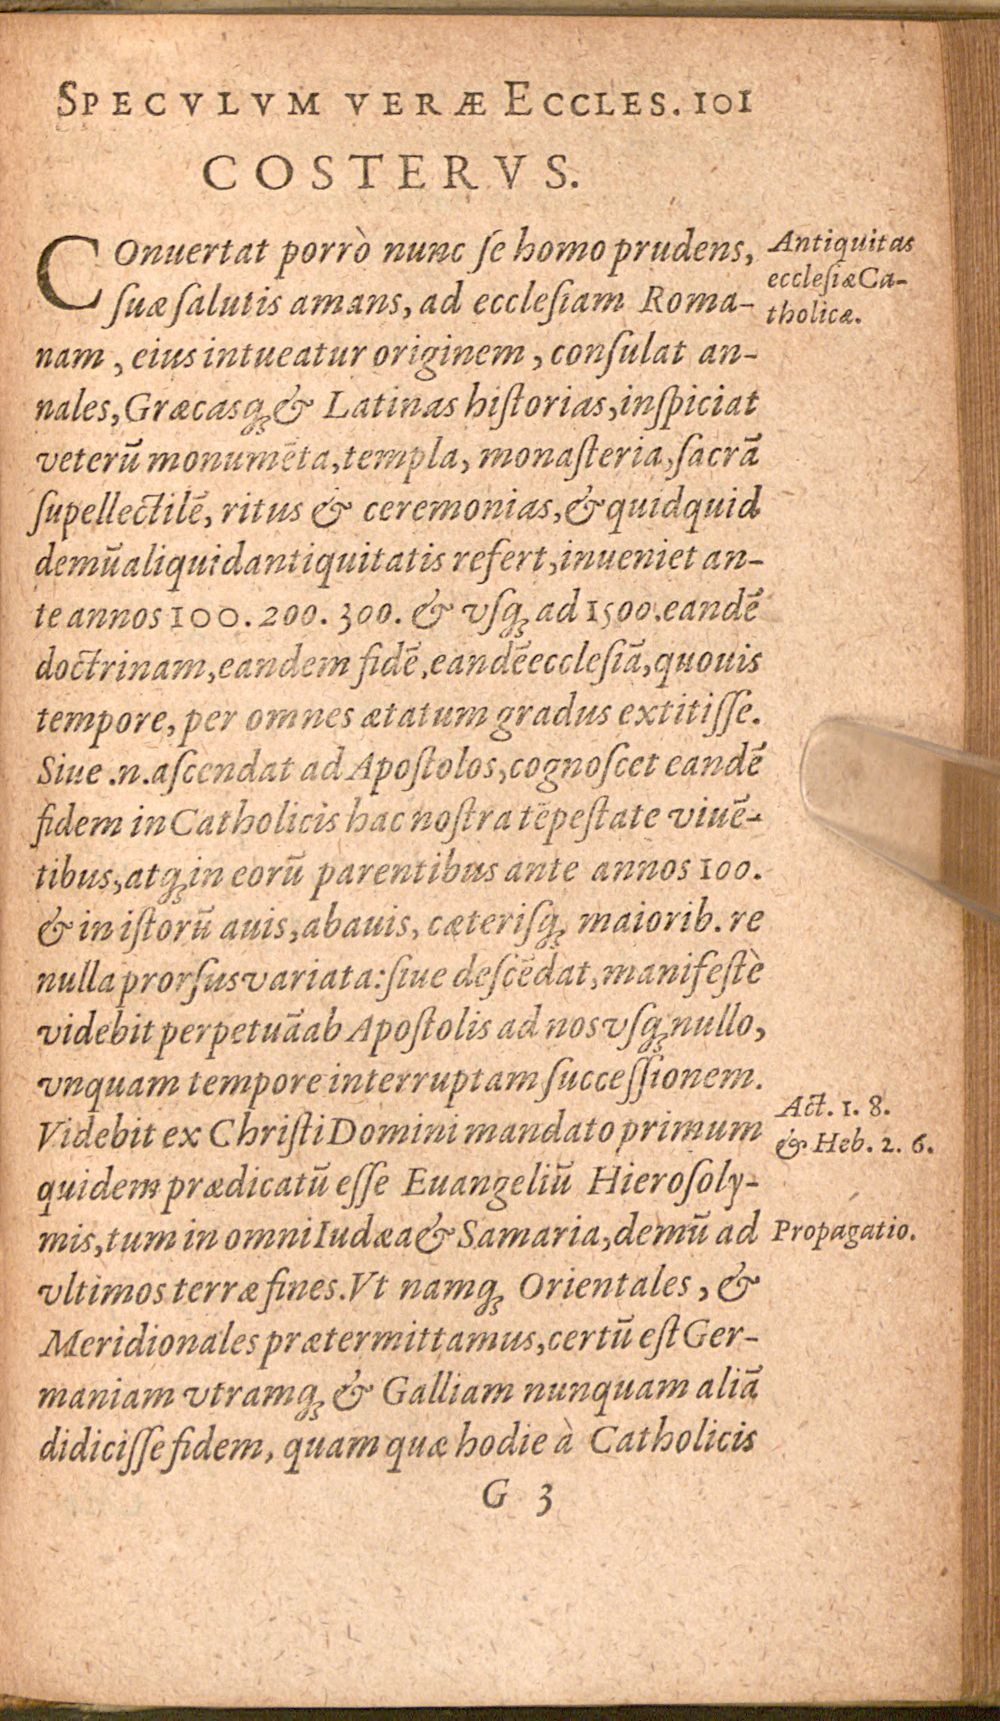 SPECVLVM VERÆ ECCLES. 101
COSTERVS.
COnuertat porrò nunc ſe homo prudens,
ſuæ ſalutis amans, ad eccleſiam Roma-
nam, eius intueatur originem, conſulat an-
nales, Græcasq́ꝫ & Latinas hiſtorias, inſpiciat
veterū monumēta, templa, monaſteria, ſacrā
ſupellectilē, ritus & ceremonias, & quidquid
demū aliquid antiquitatis refert, inueniet an-
te annos 100. 200. 300. & vſqꝫ ad 1500. eandē
doctrinam, eandem fidē, eandē eccleſiā, quouis
tempore, per omnes ætatum gradus extitiſſe.
Siue .n. aſcendat ad Apoſtolos, cognoſcet eandē
fidem in Catholicis hac noſtra tēpeſtate viuē-
tibus, atqꝫ in eorū parentibus ante annos 100.
& in iſtorū auis, abauis, cæteriſqꝫ maiorib. re
nulla prorſus variata: ſiue deſcēdat, manifeſtè
videbit perpetuā ab Apoſtolis ad nos vſqꝫ nullo,
vnquam tempore interruptam ſucceſſionem.
Videbit ex Chriſti Domini mandato primum
quidem prædicatū eſſe Euangeliū Hieroſoly-
mis, tum in omni Iudæa & Samaria, demū ad
vltimos terræ fines. Vt namqꝫ Orientales, &
Meridionales prætermittamus, certū eſt Ger-
maniam vtramqꝫ & Galliam nunquam aliā
didiciſſe fidem, quam quæ hodie à Catholicis
G 3
Antiquitas
eccleſiæ Ca-
tholicæ.
Act. 1. 8.
& Heb. 2. 6.
Propagatio.